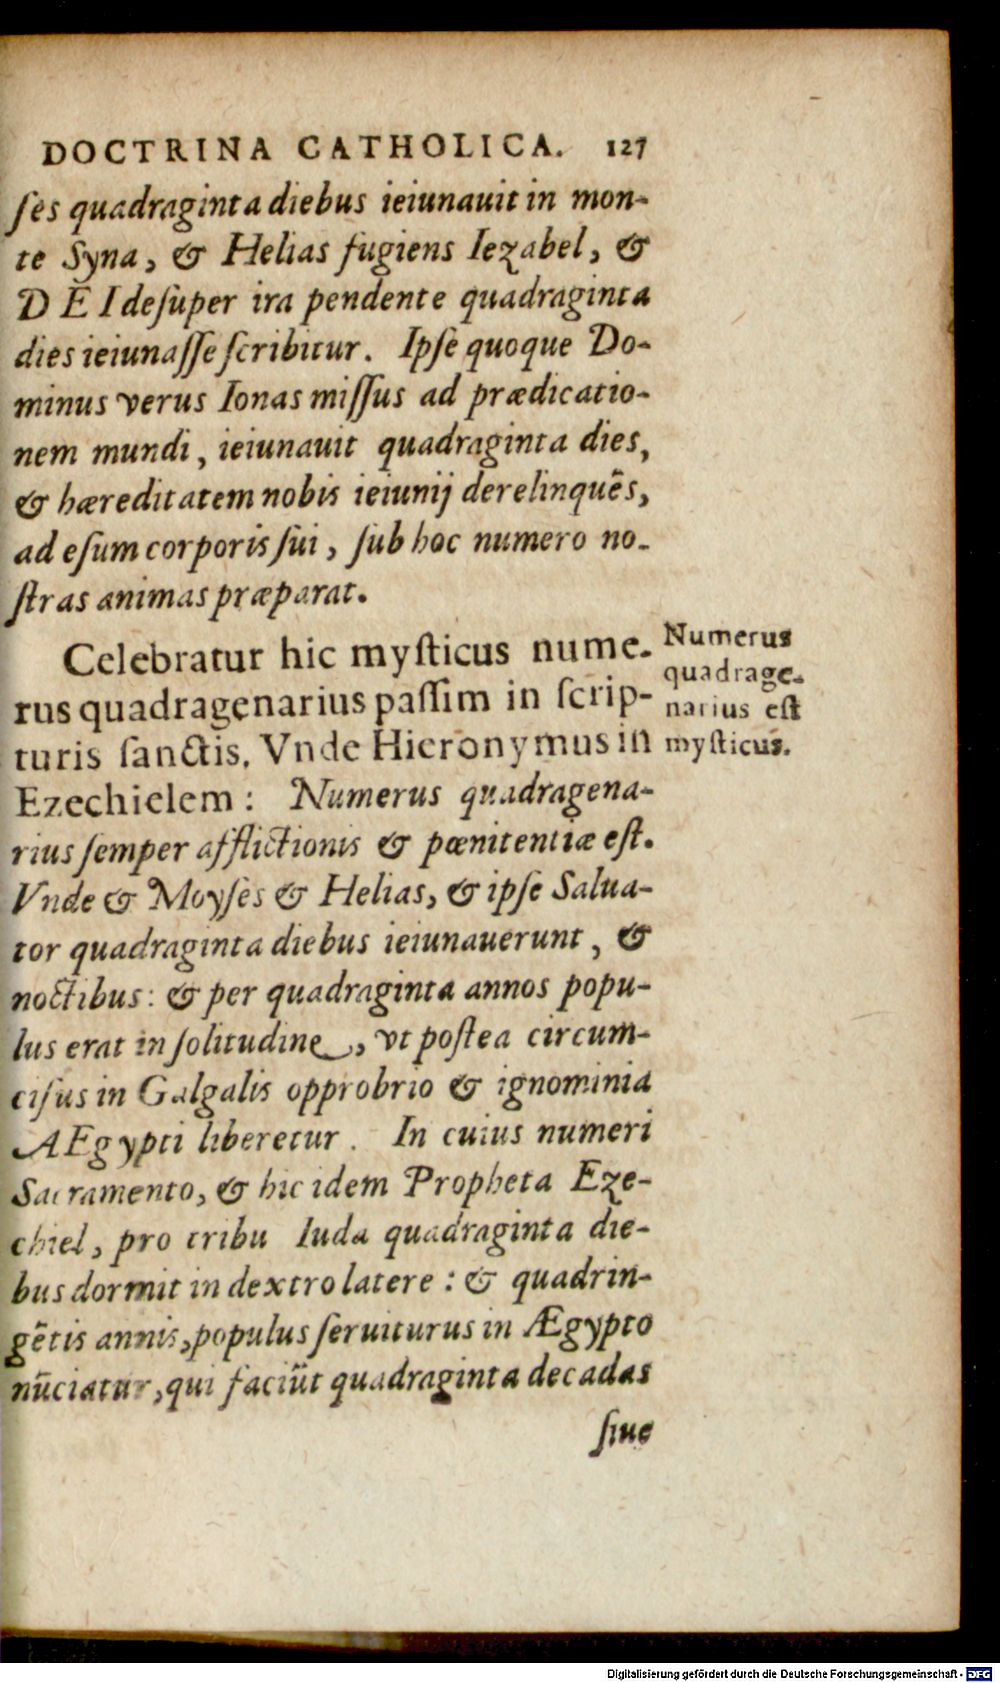 DOCTRINA CATHOLICA. 127
ſes quadraginta diebus ieiunauit in mon-
te Syna, & Helias fugiens Iezabel, &
DEI deſuper ira pendente quadraginta
dies ieiunaſſe ſcribitur. Ipſe quoque Do-
minus verus Ionas miſſus ad prædicatio-
nem mundi, ieiunauit quadraginta dies,
& hæreditatem nobis ieiunij derelinquẽs,
ad eſum corporis ſui, ſub hoc numero no-
ſtras animas præparat.
Celebratur hic myſticus nume-
rus quadragenarius paſſim in ſcrip-
turis ſanctis. Vnde Hieronymus in
Ezechielem: Numerus quadragena-
rius ſemper afflictionis & pœnitentiæ eſt.
Vnde & Moyſes & Helias, & ipſe Salua-
tor quadraginta diebus ieiunauerunt, &
noctibus: & per quadraginta annos popu-
lus erat in ſolitudine, vt poſtea circum-
ciſus in Galgalis opprobrio & ignominia
AEgypti liberetur. In cuius numeri
Sacramento, & hic idem Propheta Eze-
chiel, pro tribu Iuda quadraginta die-
bus dormit in dextro latere: & quadrin-
gẽtis annis, populus ſeruiturus in Ægypto
nũciatur, qui faciũt quadraginta decadas
ſiue
Numerus
quadrage-
narius eſt
myſticus.
Digitalisierung gefördert durch die Deutsche Forschungsgemeinschaft - DFG